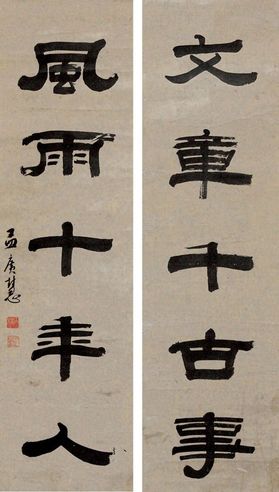 文章千古事
風雨十年人
孟广慧